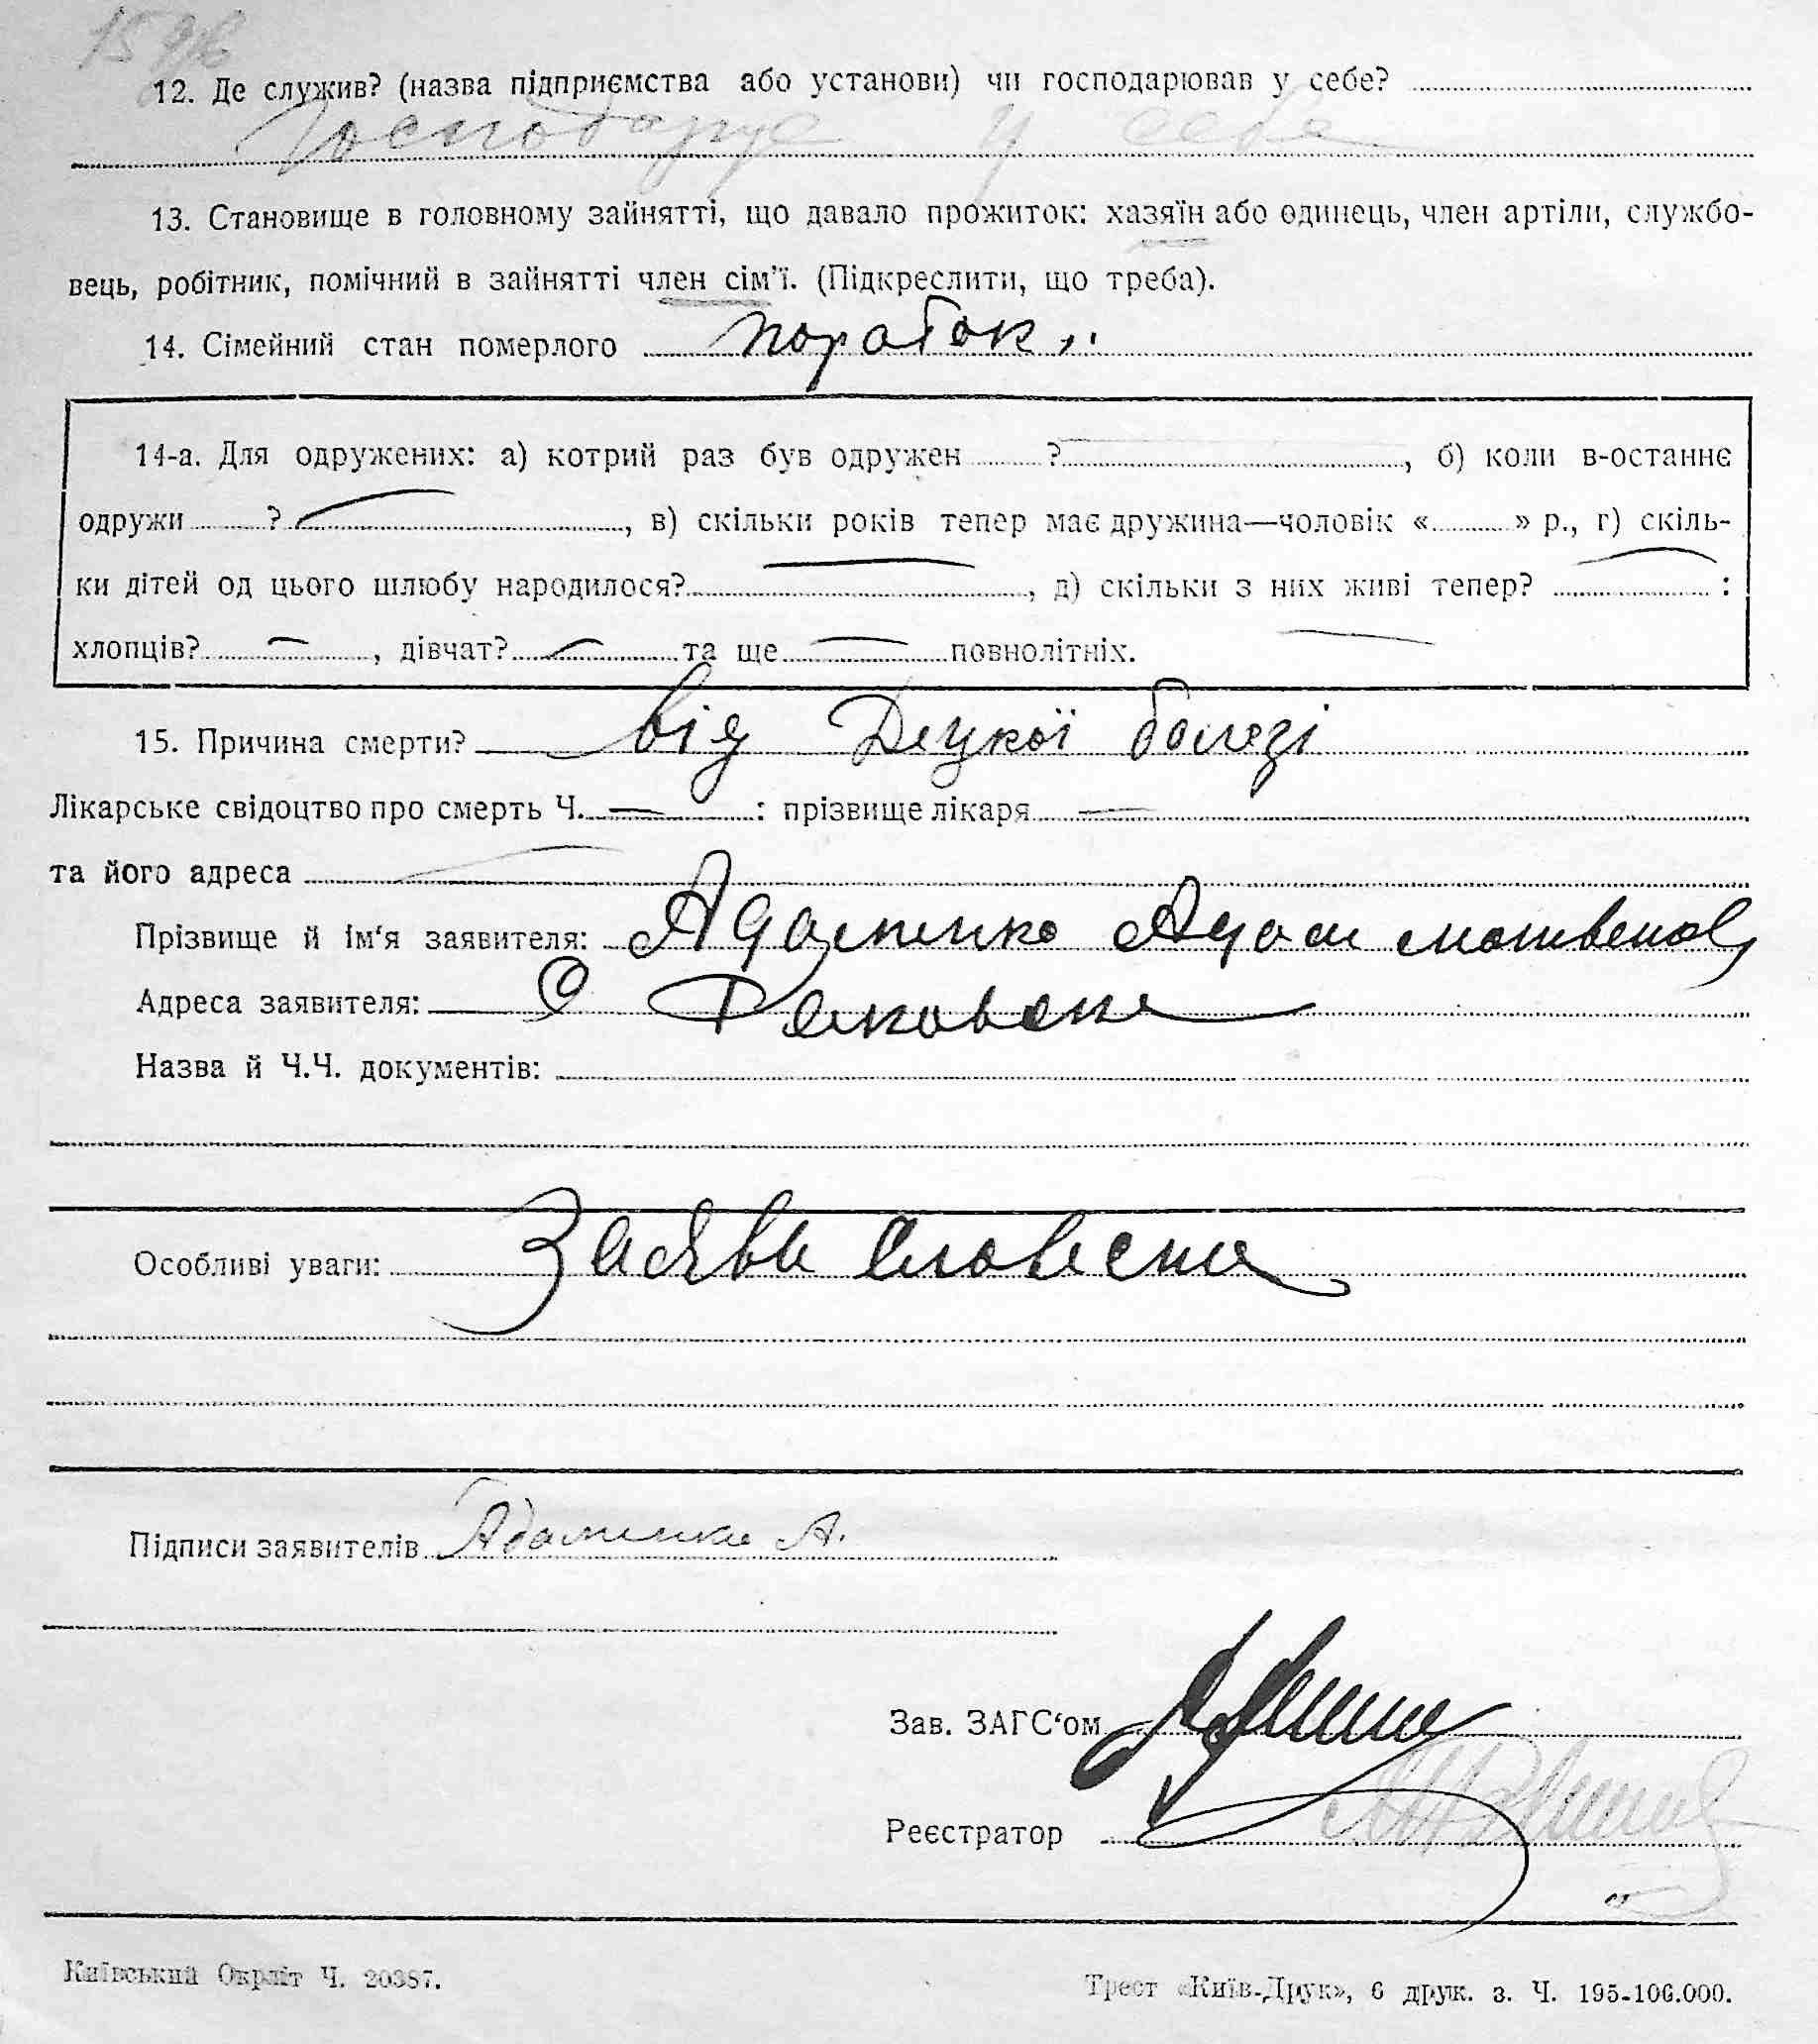 12. Де служив? (назва підприємства або установи) чи господарював у себе?
Господарує у себе
13. Становище в головному зайнятті, що давало прожиток: хазяїн або одинець, член артіли, службо-
вець, робітник, помічний в зайнятті член сім'ї. (Підкреслити, що треба).
14. Сімейний стан померлого
14-а. Для одружених: а) котрий раз був одружен ?, б) коли в-останнє
одружи ?, в) скільки років тепер має дружина—чоловік « » р., г) скіль-
ки дітей од цього шлюбу народилося?, д) скільки з них живі тепер? :
хлопців?, дівчат? та ще повнолітніх.
15. Причина смерти? від Децкої болезі
Лікарське свідоцтво про смерть Ч. : прізвище лікаря
та його адреса
Прізвище й ім'я заявителя: Адаменко Адам
Адреса заявителя: С
Назва й Ч.Ч. документів:
Особливі уваги: Заява словесна
Підписи заявителів Адаменко А.
Зав. ЗАГС'ом
Реєстратор
Київський Окрліт Ч. 20387.
Трест «Київ-Друк», 6 друк. з. Ч. 195-106.000.